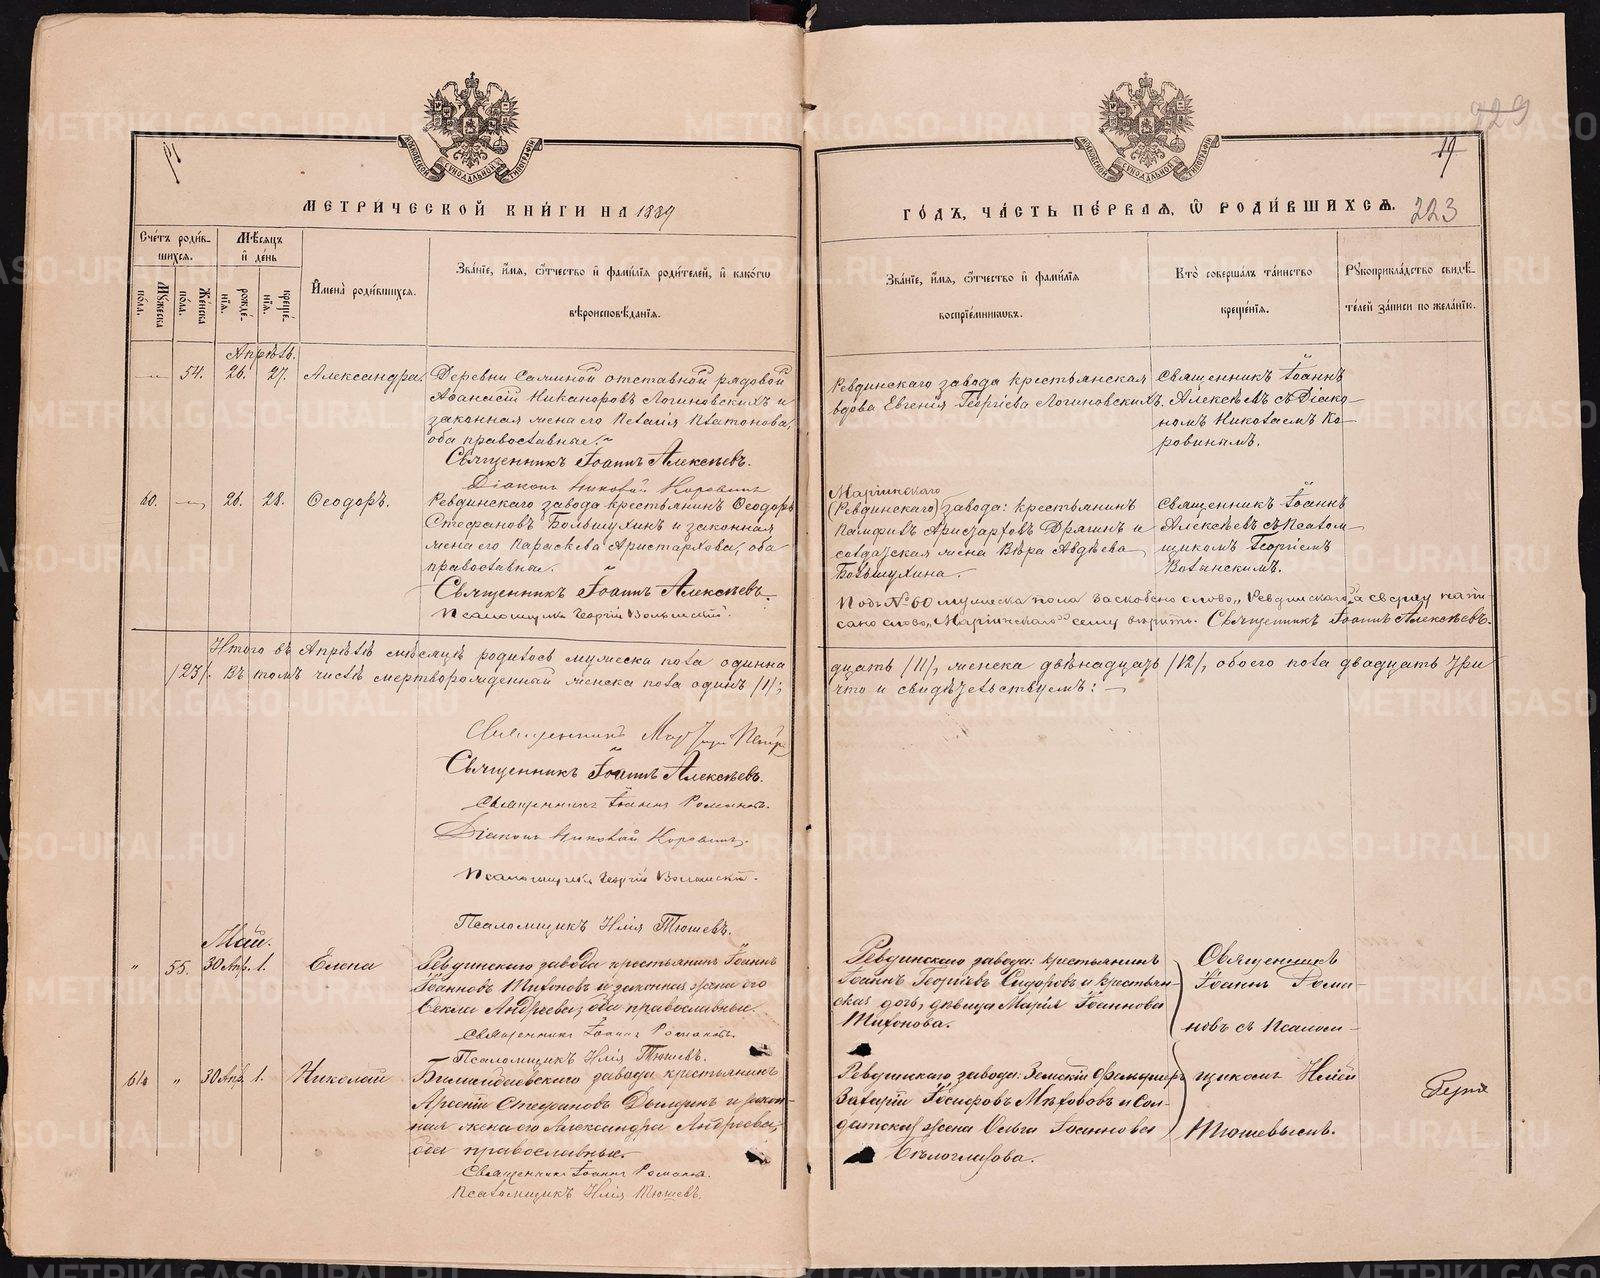 229
19
МЕТРИ́ЧЕСКОЙ КНИ́ГИ НА 1889
ГО́ДЪ, ЧА́СТЬ ПЕ́РВАЯ, Ѡ РОДИ́ВШИХСЯ. 223
Сче́тъ роди́вшихся.
Мѣ́сяцъ и де́нь
Му́жеска по́ла.
Же́нска по́ла.
рожде́нія.
креще́нія.
Имена̀ роди́вшихся.
Зва́ніе, и́мя, ѻ́тчество и фами́лія роди́телей, и како́гѡ
вѣроисповѣ́данія.
Зва́ніе, и́мя, ѻ́тчество и фами́лія
воспріе́мникѡвъ.
Кто̀ соверша́лъ та́инство
креще́нія.
Рукоприкла́дство свидѣ́-
телей за́писи по жела́нію.
Апрѣль.
54. 26. 27. Александра.
Деревни Саминой отставной рядовой
Аѳанасій Никаноровъ Логиновскихъ и
законная жена его Пелагія Платонова,
оба православные.
Священникъ Іоаннъ Алексѣевъ.
Діаконъ Николай Коровинъ
Ревдинскаго завода крестьянская
вдова Евгенія Георгіева Логиновскихъ.
Священникъ Іоаннъ
Алексѣевъ съ Діако-
номъ Николаемъ Ко-
ровинымъ.
60. 26. 28. Ѳеодоръ.
Ревдинскаго завода крестьянинъ Ѳеодоръ
Стефановъ Большухинъ и законная
жена его Параскева Аристархова, оба
православные.
Священникъ Іоаннъ Алексѣевъ.
Псаломщикъ Георгій Волынскій.
Маріинскаго
(Ревдинскаго) завода: крестьянинъ
Памфилъ Аристарховъ Дрягинъ и
солдатская жена Вѣра Авдѣева
Большухина.
Священникъ Іоаннъ
Алексѣевъ съ Псалом-
щикомъ Георгіемъ
Волынскимъ.
Подъ № 60 мужеска пола заскоблено слово „Ревдинскаго“, а сверху напи
сано слово „Маріинскаго“ сему вѣрить. Священникъ Іоаннъ Алексѣевъ.
Итого въ Апрѣлѣ мѣсяцѣ родилось мужеска пола одинна
дцать /11/, женска двѣнадцать /12/, обоего пола двадцать три
/23/. Въ томъ числѣ мертворожденный женска пола одинъ /1/;
что и свидѣтельствуемъ:
Священникъ
Священникъ Іоаннъ Алексѣевъ.
Священникъ Іоаннъ Романовъ.
Діаконъ Николай Коровинъ.
Псаломщикъ Георгій Волынскій.
Псаломщикъ Илія Тюшевъ.
Май.
„ 55. 30 Апр. 1. Елена
Ревдинскаго завода крестьянинъ Іоаннъ
Іоанновъ Тихоновъ и законная жена его
Ѳекла Андреева, оба православные.
Священникъ Іоаннъ Романовъ.
Псаломщикъ Илія Тюшевъ.
Ревдинскаго завода: крестьянинъ
Іоаннъ Георгіевъ Сидоровъ и крестьян-
ская дочь, дѣвица Марія Іоаннова
Тихонова.
Священникъ
Іоаннъ Рома-
новъ съ Псалом-
61. „ 30 Апр. 1. Николай
Билимбаевскаго завода крестьянинъ
Арсеній Стефановъ Дылдинъ и закон-
ная жена его Александра Андреева,
оба православные.
Священникъ Іоаннъ Романовъ.
Псаломщикъ Илія Тюшевъ.
Ревдинскаго завода: Земскій Фельдшеръ
Захарій Іосифовъ Мѣховъ и Сол-
датская жена Ольга Іоаннова
Бѣлоглазова.
щикомъ Иліей
Тюшевымъ.